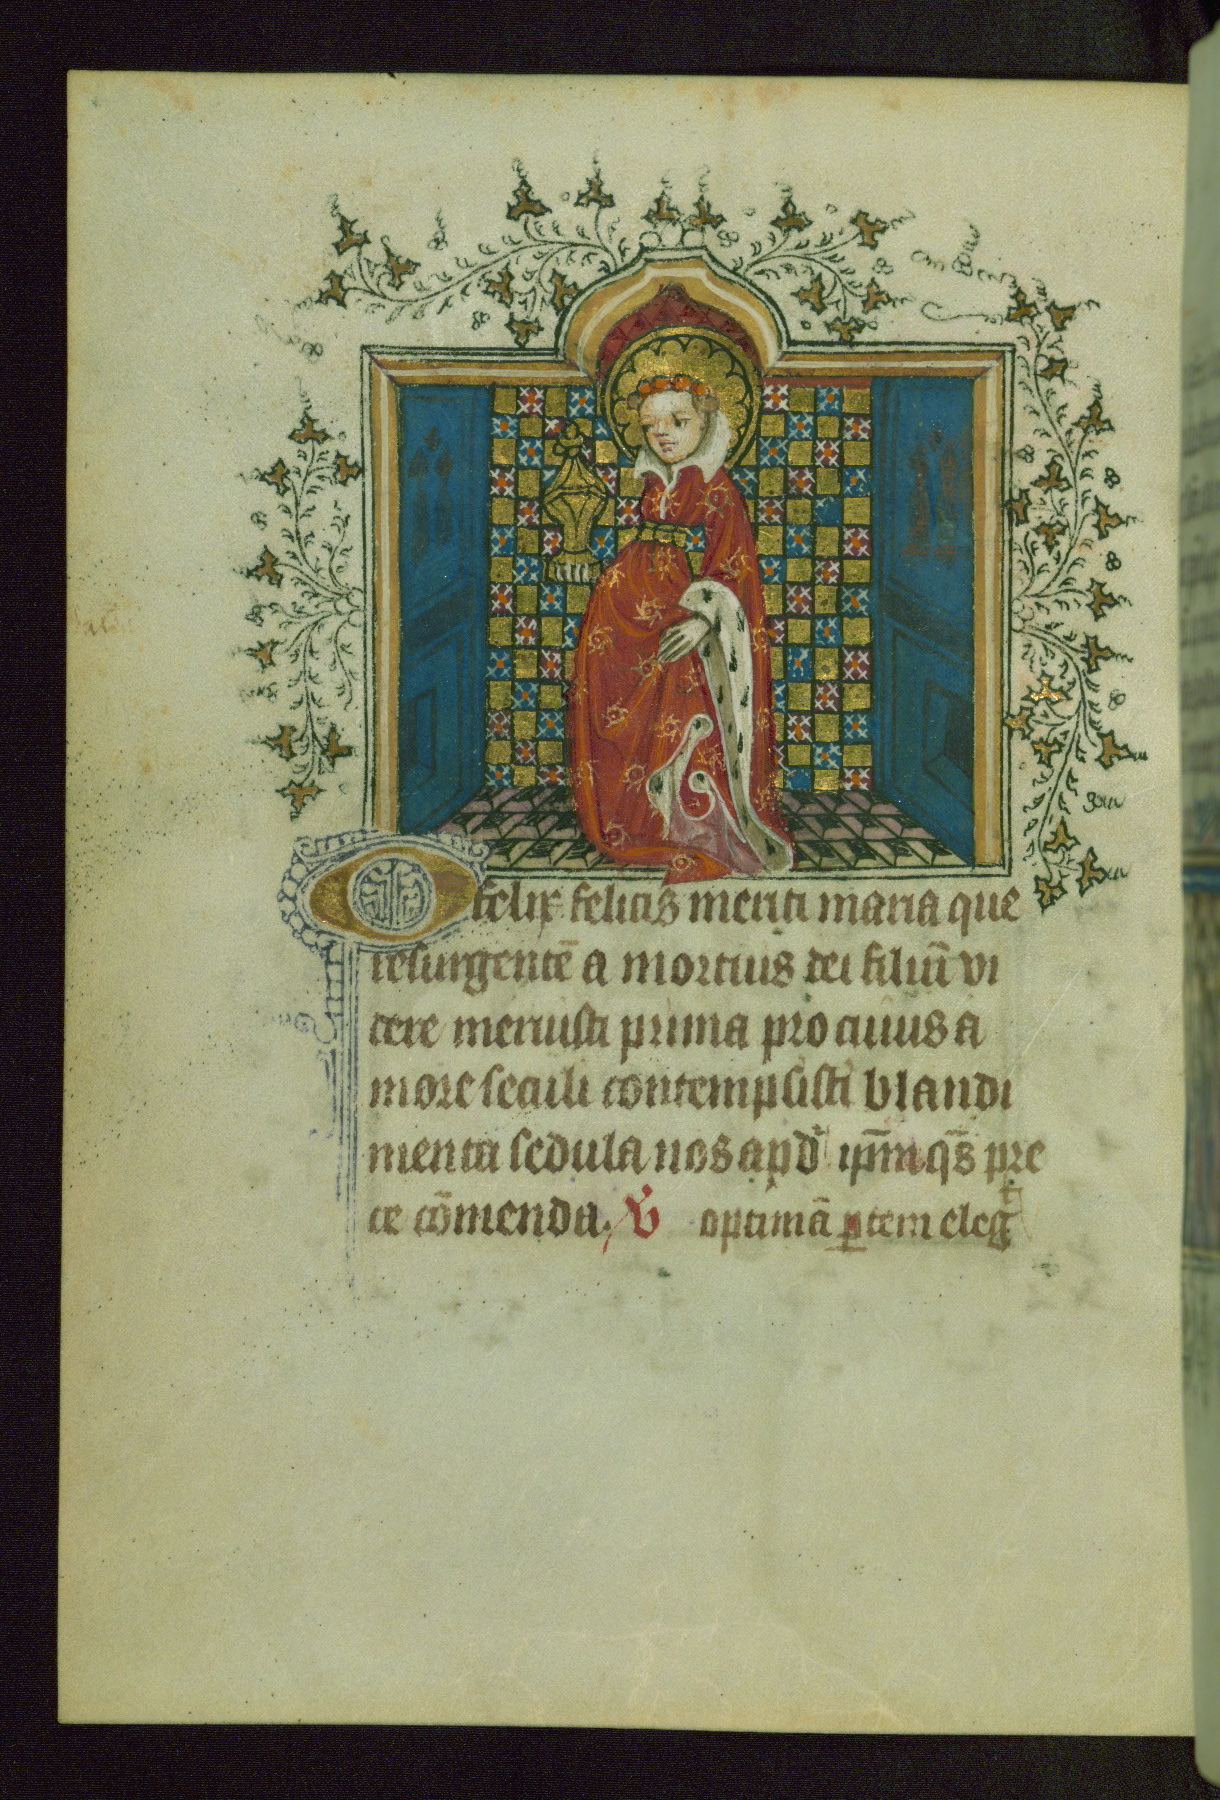 O felix felicis meriti maria que
resurgentē a mortuis dei filiū vi
dere meruisti prima pro cuius a
more seculi contempsisti blandi
menta sedula nos apd' ip̄m qs̄ pre
ce cōmenda. V optimā ꝑtem eleg̃